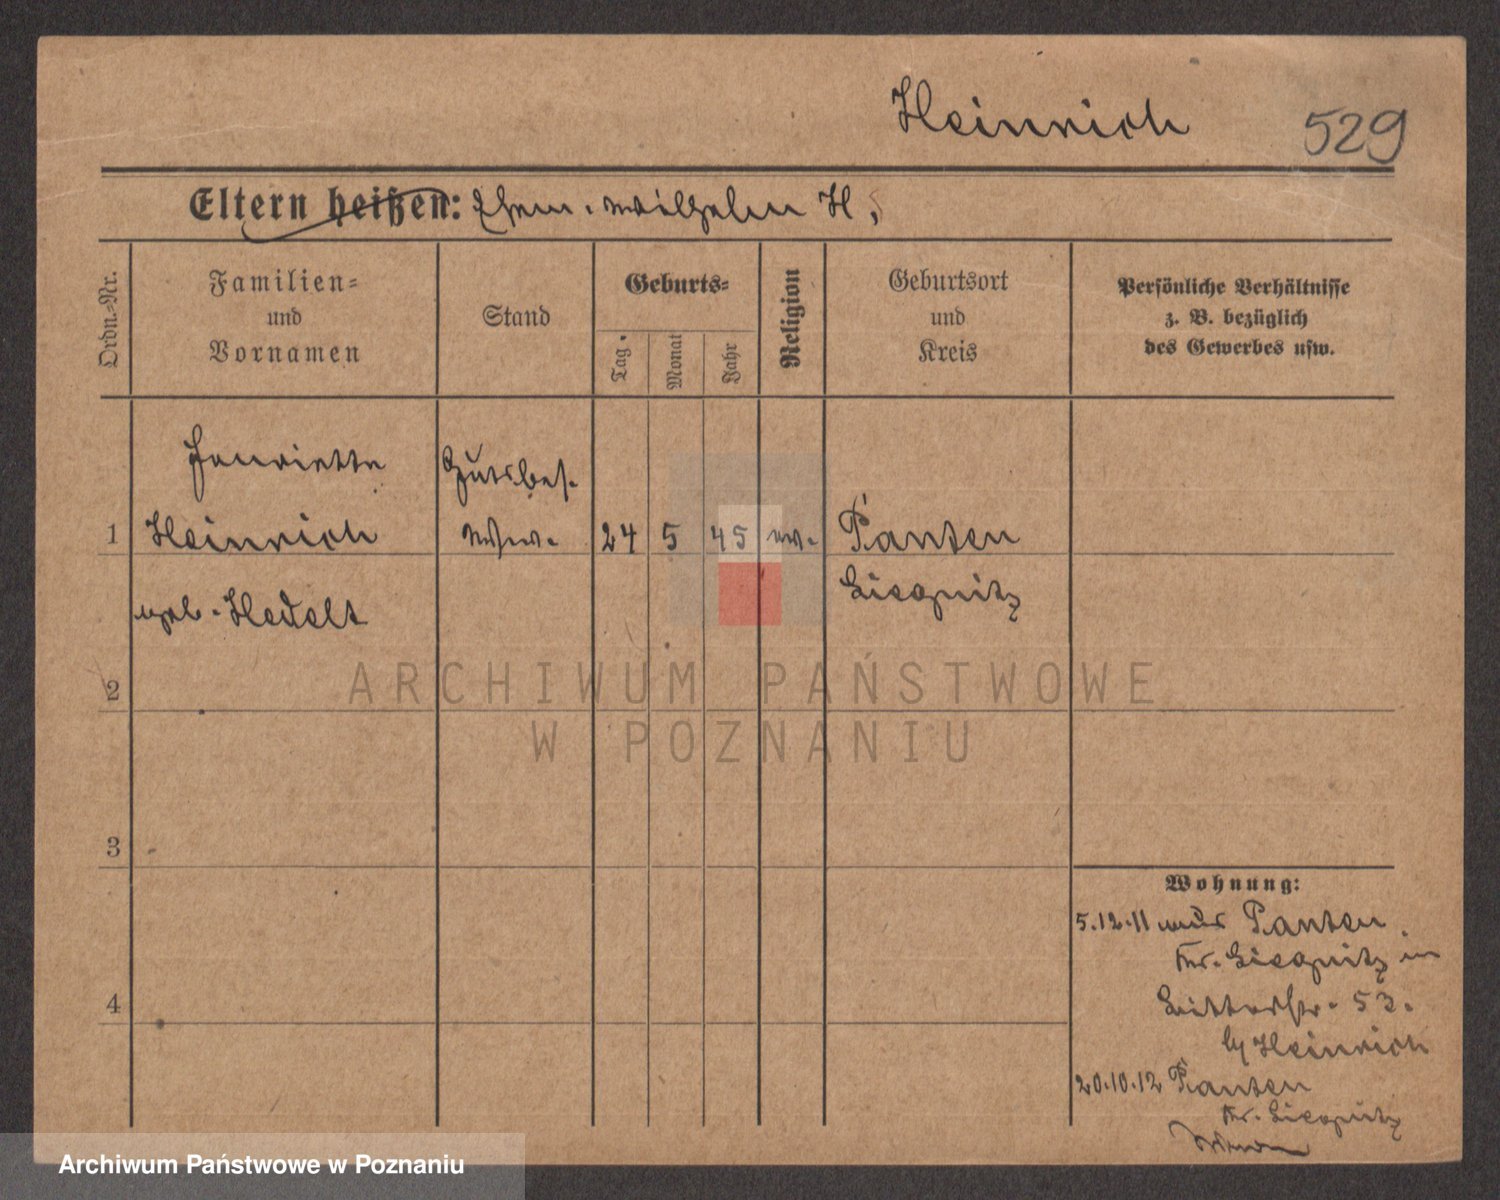 Heinrich
529
Eltern heißen: Ehem. Wilhelm H.
Ordn.-Nr.
Familien-
und
Vornamen
Stand
Geburts-
Tag.
Monat
Jahr
Religion
Geburtsort
und
Kreis
Persönliche Verhältnisse
z. B. bezüglich
des Gewerbes usw.
Henriette
Gutsbes.
1 Heinrich Wwe. 24 5 45 ev. Panten
Liegnitz
geb. Hedelt
2
3
4
Wohnung:
5.12.11 aus Panten
Kr. Liegnitz in
53.
b/ Heinrich
20.10.12 Panten
Kr. Liegnitz
ARCHIWUM PAŃSTWOWE
W POZNANIU
Archiwum Państwowe w Poznaniu